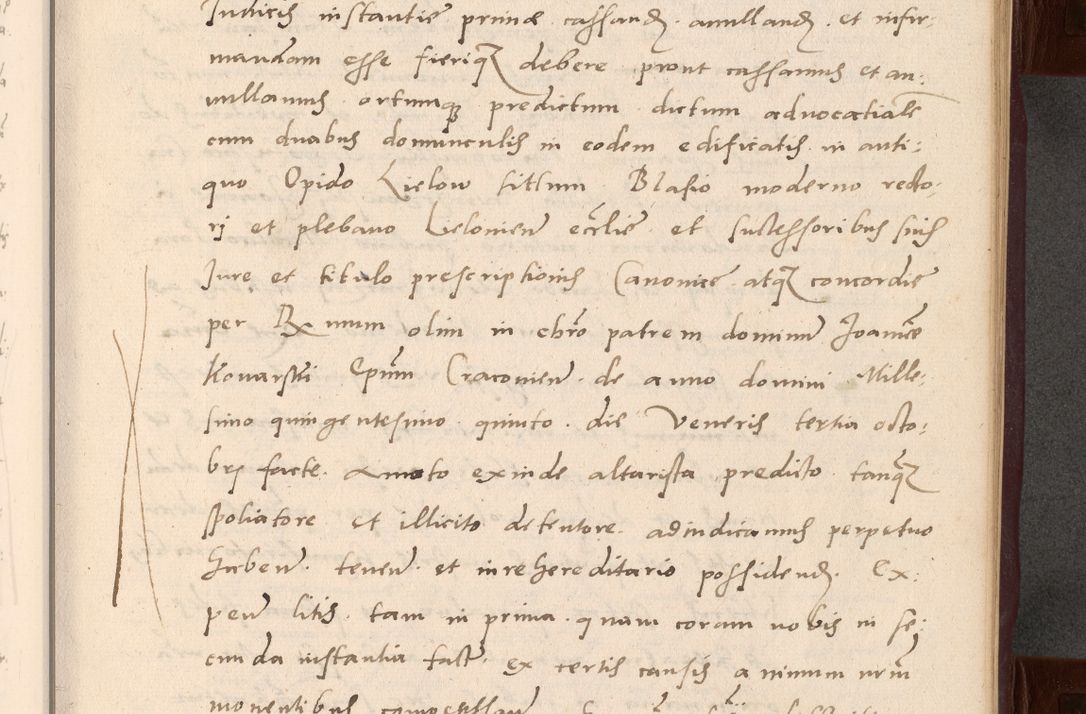 Judicis instantie prime cassand. anulland. et infir:
mandam esse fieriqz debere prout cassamus et an:
nullamus ortumqz predictum dictum advocatiale
cum duabus domunculis in eodem edificatis in anti:
quo Opido Lielow sittum Blasio moderno recto:
rj et plebano Lelovien ecclie et successoribus suis
Jure et titulo prescriptionis Canonice atqz concordie
per Rx mum olim in chro patrem dominum Joannem
Konarski Epum Cracovien de anno domini Mille:
simo quingentesimo quinto die Veneris tertia octo:
brj facte. Amoto exinde altarista predicto tanqz
spoliatore et illicito detentore adiudicamus perpetuo
haben tenen et in re hereditario possidend. Ex:
pen litis tam in prima quam coram nobis in se:
cunda instantia fact ex certis causis animum nrm
moventibus